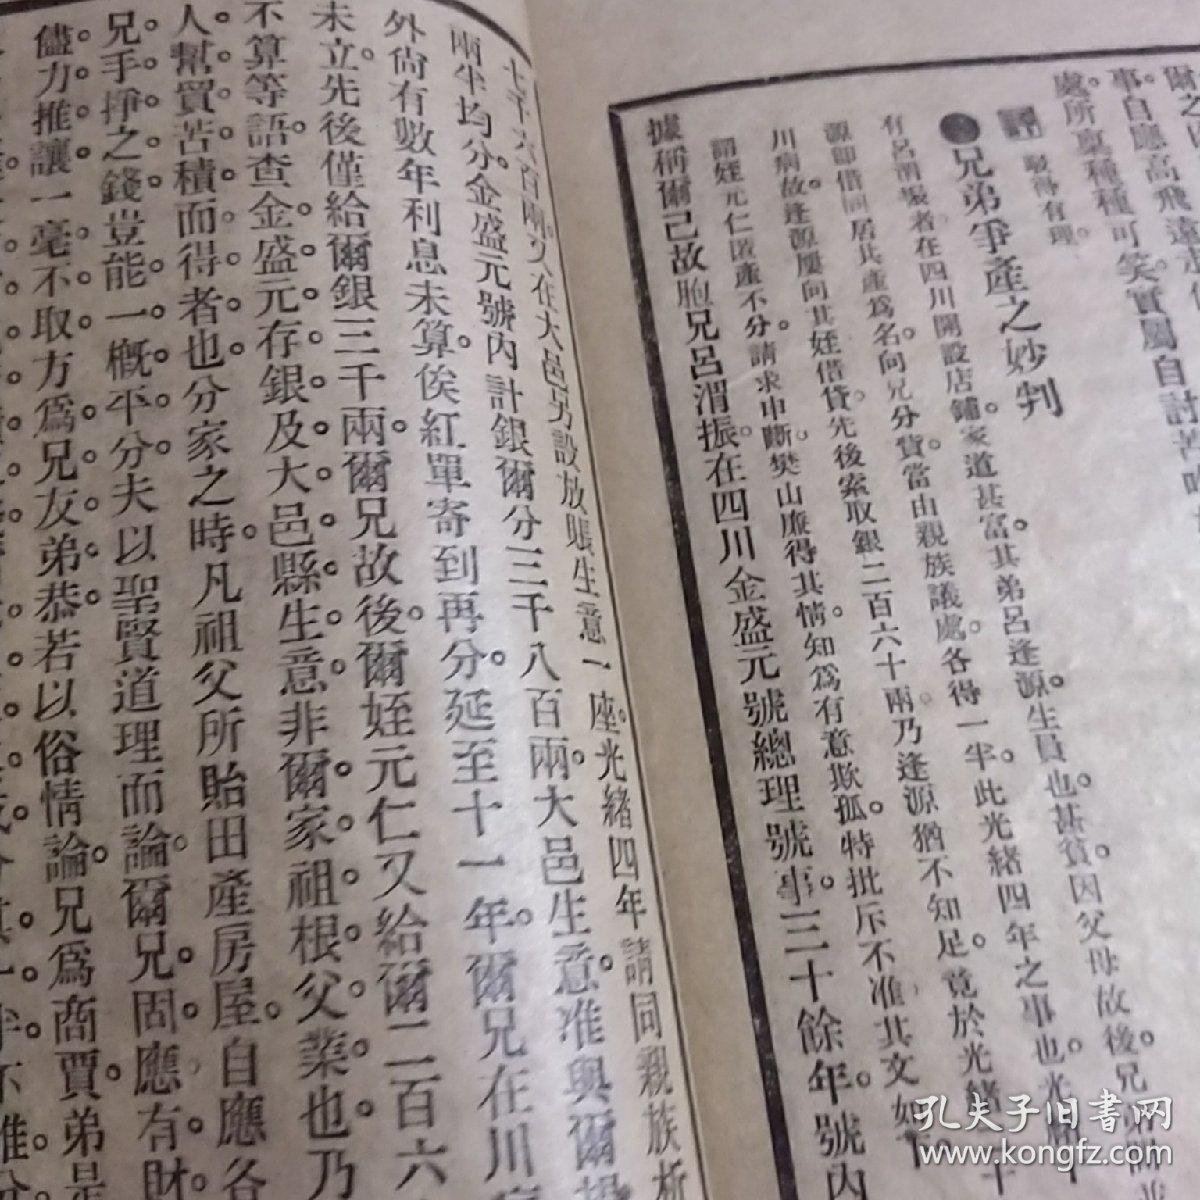 事自應高飛遠
處所稟種種可笑實屬自討苦
評 駁得有理
兄弟爭產之妙判
有呂渭振者在四川開設店鋪家道甚富。其弟呂逢源生員也。甚貧。因父母故後。兄
源卽借同居共產爲名。向兄分貲。當由親族議處。各得一半。此光緒四年之事也。光
川病故。逢源屢向其姪借貸。先後索取銀二百六十兩。乃逢源猶不知足。竟於光緒 十
謂姪元仁匿產不分。請求申斷。樊山廉得其情。知爲有意欺孤。特批斥不准其文如下
據稱爾已故胞兄呂渭振在四川金盛元號總理號事三十餘年。號內
七千六百兩。又在大邑另設放賬生意一座。光緒四年請同親族析
兩半均分。金盛元號內計銀爾分三千八百兩。大邑生意准與爾
外尙有數年利息未算。俟紅單寄到再分。延至十一年。爾兄在川
未立。先後僅給爾銀三千兩。爾兄故後。爾姪元仁又給爾二百六
不算等語。查金盛元存銀及大邑縣生意。非爾家祖根父業也。乃
人幫買苦積而得者也。分家之時。凡祖父所貽田產房屋。自應各
兄手掙之錢。豈能一槪平分。夫以聖賢道理而論。爾兄固應有財
儘力推讓。一毫不取。方爲兄友弟恭。若以俗情論。兄爲商賈。弟是
孔夫子旧書网
www.kongfz.com